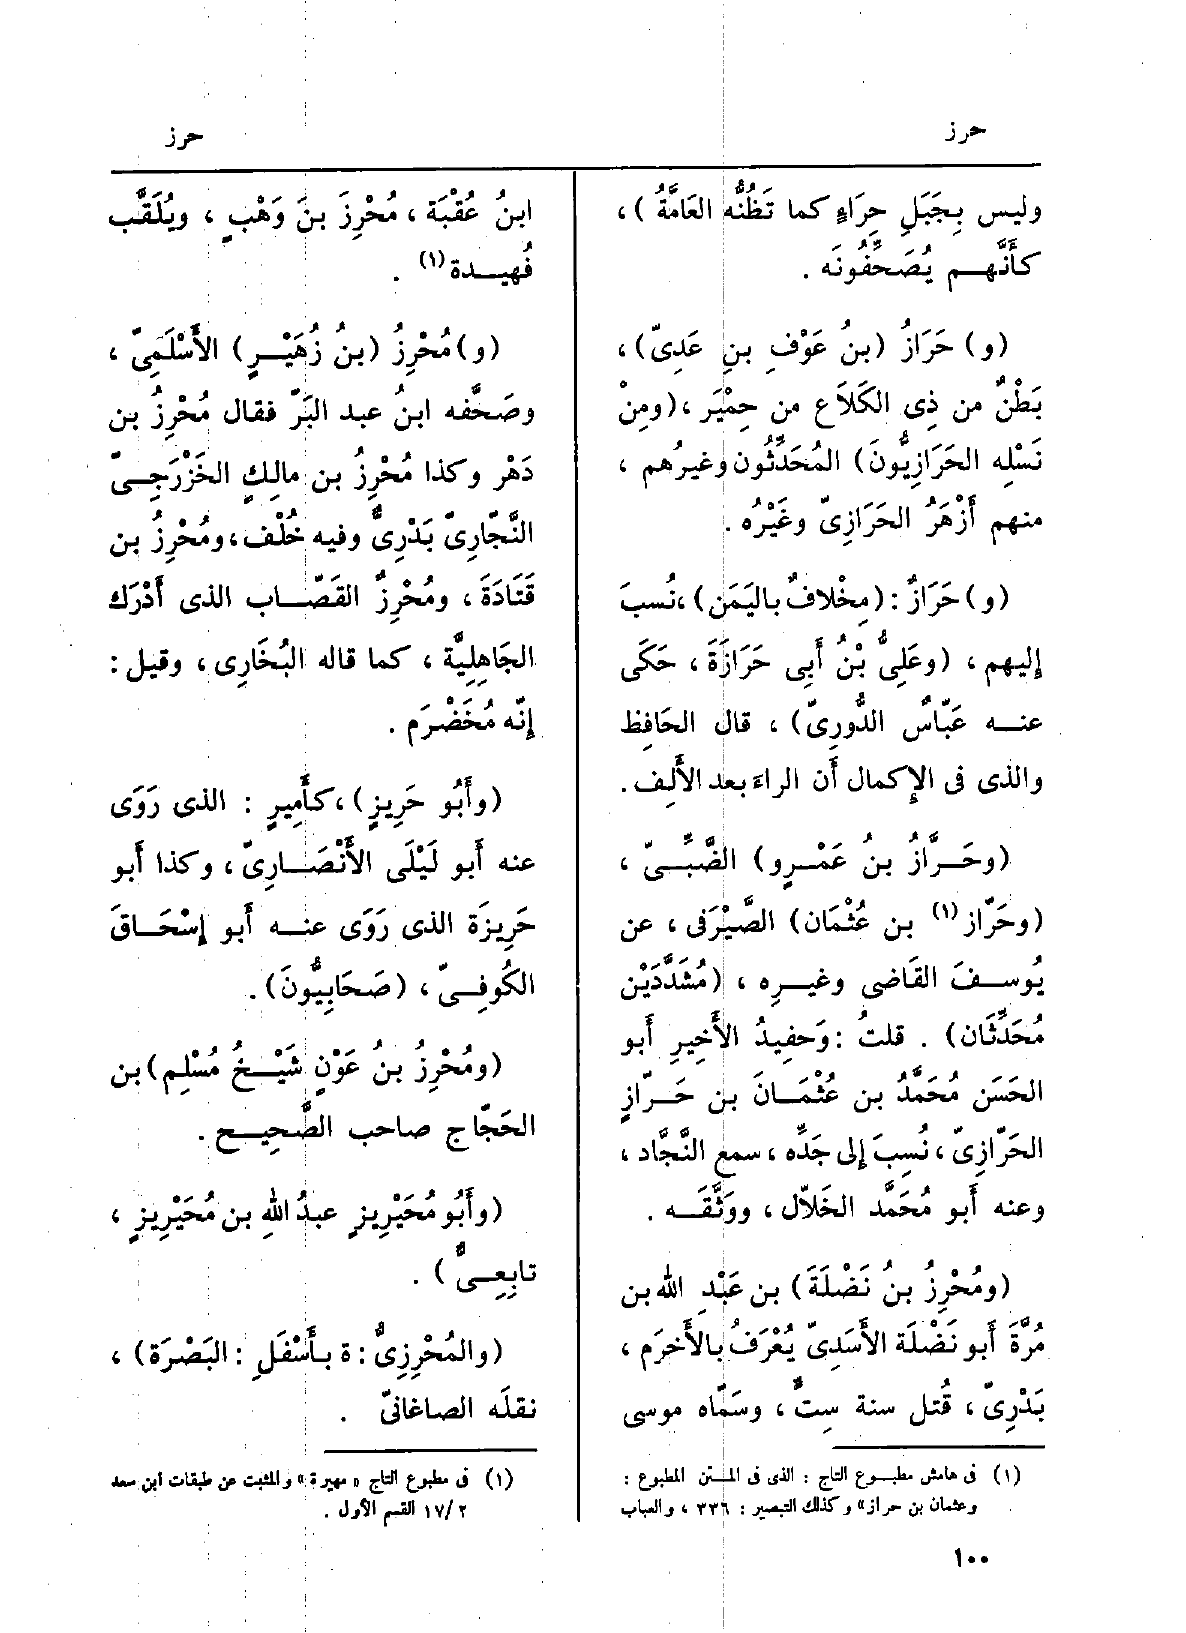 حرز
حرز
وليس بِجَبَلِ حِرَاءٍ كما تَظُنُّه العَامَّةُ ) ،
كأَنَّهم يُصَحِّفُونَه .
( و ) حَرَازُ ( بنُ عَوْفِ بنِ عَدِىّ ) ،
بَطْنٌ من ذِى الكَلَاعِ من حِمْيَر ، ( ومِنْ
نَسْلِه الحَرَازِيُّونَ ) المُحَدِّثُون وغيرُهم ،
منهم أَزْهَرُ الحَرَازِىّ وغَيْرُه .
( و ) حَرَازٌ : ( مِخْلافٌ باليَمَن ) ، نُسبَ
إليهم ، ( وعَلِىُّ بْنُ أَبِى حَرَازَةَ ، حَكَى
عنه عَبّاسٌ الدُّورِىّ ) ، قال الحَافِظ
والذى فى الإكمال أن الراءَ بعد الأَلِف .
( وحَرَّازُ بنُ عَمْرٍو ) الضَّبِّىّ ،
( وحَرّاز (١) بن عُثْمَان ) الصَّيْرَفى ، عن
يُوسفَ القَاضى وغيره ، ( مُشَدَّدَيْن
مُحَدِّثَان ) . قلتُ : وَحفِيدُ الأَخِيرِ أَبو
الحَسَن مُحَمَّدُ بن عُثْمَانَ بن حَرّازٍ
الحَرّازِىّ ، نُسِبَ إلى جَدِّه ، سمع النَّجَّاد ،
وعنه أَبو مُحَمَّد الخَلّال ، ووَثَّقَه .
( ومُحْرِزُ بنُ نَضْلَةَ ) بن عَبْدِ الله بن
مُرَّةَ أَبو نَضْلَة الأَسَدِىّ يُعْرَفُ بالأَخرَم ،
بَدْرِىّ ، قُتل سنة سِتٍّ ، وسَمَّاه موسى
(١) فى هامش مطبوع التاج : الذى فى المتن المطبوع :
وعثمان بن حراز» وكذلك التبصير : ٣٣٦ ، والعباب
ابنُ عُقْبَة ، مُحْرِزَ بنَ وَهْبٍ ، ويُلَقَّب
فُهيدة (١) .
( و ) مُحْرِزُ ( بنُ زُهَيْرٍ ) الأَسْلَمِىّ ،
وصَحَّفه ابنُ عبد البَرّ فقال مُحْرِزُ بن
دَهْر وكذا مُحْرِزُ بن مالِكٍ الخَزْرَجِىّ
النَّجّارِىّ بَدْرِىٌّ وفيه خُلْف ، ومُحْرِزُ بن
قَتَادَةَ ، ومُحْرِزٌ القَصّاب الذى أَدْرَك
الجَاهِلِيَّة ، كما قاله البُخَارِى ، وقيل :
إنّه مُخَضْرَم .
( وأَبُو حَرِيزٍ ) ، كأَمِيرٍ : الذى رَوَى
عنه أَبو لَيْلَى الأَنْصَارِىّ ، وكذا أَبو
حَرِيزَة الذى رَوَى عنه أَبو إسْحَاقَ
الكُوفِىّ ، ( صَحَابِيُّونَ ) .
( ومُحْرِزُ بنُ عَوْنٍ شَيْخُ مُسْلِم ) بن
الحَجّاجِ صاحب الصَّحِيح .
( وأَبُو مُحَيْرِيزٍ عبدُ اللهِ بن مُحَيْرِيزٍ ،
تابِعِىٌّ ) .
( والمُحْرِزِىُّ : ة بأَسْفَلِ : البَصْرَة ) ،
نقلَه الصاغانىّ .
(١) فى مطبوع التاج « مهيرة » والمثبت عن طبقات ابن سعد
٢ /١٧ القسم الأول .
١٠٠